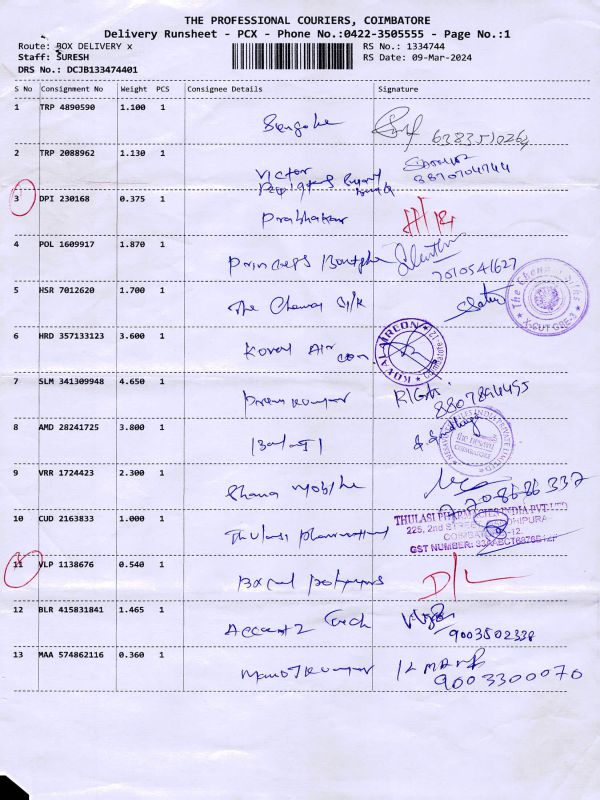 THE PROFESSIONAL COURIERS, COIMBATORE
Delivery Runsheet - PCX - Phone No.:0422-3505555 - Page No.:1
Route: BOX DELIVERY x
RS No.: 1334744
Staff: SURESH
RS Date: 09-Mar-2024
DRS No.: DCJB133474401
S No Consignment No Weight PCS Consignee Details Signature
1 TRP 4890590 1.100 1
6383510264
2 TRP 2088962 1.130 1 Victor
8870704744
3 DPI 230168 0.375 1 Prabhakar
4 POL 1609917 1.870 1 Princess
7010541627
5 HSR 7012620 1.700 1 The Chennai Silk
The Chennai Silks
X-CUT GBE-3
6 HRD 357133123 3.600 1 Kovai Air con.
KOVAI AIRCON
7 SLM 341309948 4.650 1 Prem kumar
8807894495
8 AMD 28241725 3.800 1 Balaji
COIMBATORE
9 VRR 1724423 2.300 1
10 CUD 2163833 1.000 1 Thulasi
THULASI PHARMACIES INDIA PVT LTD
225, 2nd
GST NUMBER:
11 VLP 1138676 0.540 1
D/L
12 BLR 415831841 1.465 1 Tech
9003502338
13 MAA 574862116 0.360 1 Manoj kumar
9003300070